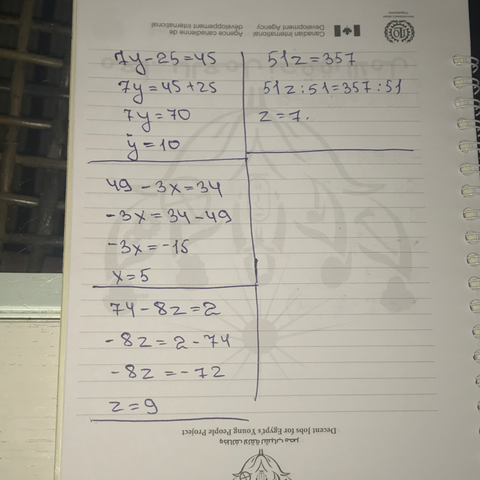 Canadian International Development Agency
Agence canadienne de développement international
7y-25=45
7y=45+25
7y=70
y=10
49-3x=34
-3x=34-49
-3x=-15
x=5
74-8z=2
-8z=2-74
-8z=-72
z=9
51z=357
51z:51=357:51
z=7.
Decent Jobs for Egypt's Young People Project